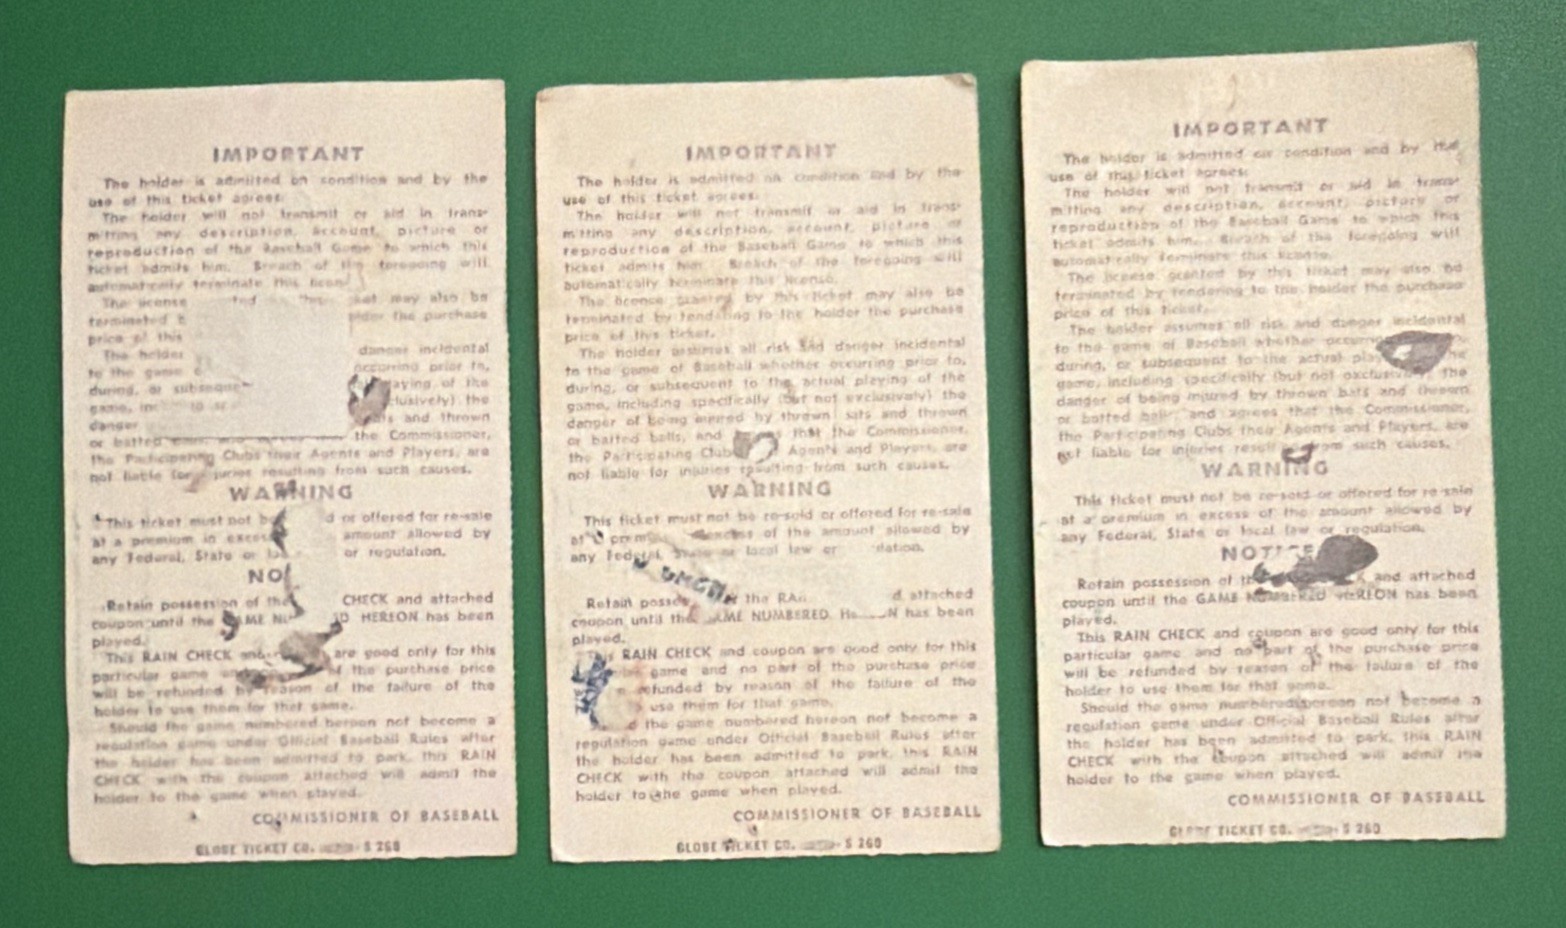 IMPORTANT
The holder is admitted on condition and by the
use of this ticket agrees:
The holder will not transmit or aid in trans-
mitting any description, account, picture or
reproduction of the Baseball Game to which this
ticket admits him. Breach of the foregoing will
automatically terminate this
The license may also be
terminated the purchase
price of this
The holder danger incidental
to the game occurring prior to,
during, or of the
game, the
danger and thrown
or batted the Commissioner,
the Participating Clubs their Agents and Players, are
not liable for resulting from such causes.
WARNING
This ticket must not or offered for re-sale
at a premium in amount allowed by
any Federal, State or or regulation.
Retain possession of CHECK and attached
coupon until the HEREON has been
played.
This RAIN CHECK are good only for this
particular game the purchase price
will be refunded by reason of the failure of the
holder to use them for that game.
Should the game numbered hereon not become a
regulation game under Official Baseball Rules after
the holder has been admitted to park, this RAIN
CHECK with the coupon attached will admit the
holder to the game when played.
COMMISSIONER OF BASEBALL
GLOBE TICKET CO. S 260
IMPORTANT
The holder is admitted on condition and by the
use of this ticket agrees:
The holder will not transmit or aid in trans-
mitting any description, account, picture or
reproduction of the Baseball Game to which this
ticket admits him. Breach of the foregoing will
automatically terminate this license.
The license granted by this ticket may also be
terminated by tendering to the holder the purchase
price of this ticket.
The holder assumes all risk and danger incidental
to the game of Baseball whether occurring prior to,
during, or subsequent to the actual playing of the
game, including specifically (but not exclusively) the
danger of being injured by thrown bats and thrown
or batted balls, and that the Commissioner,
the Participating Agents and Players, are
not liable for injuries resulting from such causes.
WARNING
This ticket must not be re-sold or offered for re-sale
at excess of the amount allowed by
any Federal, State or local law or
Retain the attached
coupon until the GAME NUMBERED has been
played.
RAIN CHECK and coupon are good only for this
game and no part of the purchase price
refunded by reason of the failure of the
use them for that game.
the game numbered hereon not become a
regulation game under Official Baseball Rules after
the holder has been admitted to park, this RAIN
CHECK with the coupon attached will admit the
holder to the game when played.
COMMISSIONER OF BASEBALL
GLOBE TICKET CO. S 260
IMPORTANT
The holder is admitted on condition and by the
use of this ticket agrees:
The holder will not transmit or aid in trans-
mitting any description, account, picture or
reproduction of the Baseball Game to which this
ticket admits him. Breach of the foregoing will
automatically terminate this license.
The license granted by this ticket may also be
terminated by tendering to the holder the purchase
price of this ticket.
The holder assumes all risk and danger incidental
to the game of Baseball whether
during, or subsequent to the actual
game, including specifically (but not exclusively) the
danger of being injured by thrown bats and thrown
or batted balls, and agrees that the Commissioner,
the Participating Clubs their Agents and Players, are
not liable for injuries from such causes.
WARNING
This ticket must not be re-sold or offered for re-sale
at a premium in excess of the amount allowed by
any Federal, State or local law or regulation.
NOTICE
Retain possession of and attached
coupon until the GAME NUMBERED HEREON has been
played.
This RAIN CHECK and coupon are good only for this
particular game and no part of the purchase price
will be refunded by reason of the failure of the
holder to use them for that game.
Should the game numbered hereon not become a
regulation game under Official Baseball Rules after
the holder has been admitted to park, this RAIN
CHECK with the coupon attached will admit the
holder to the game when played.
COMMISSIONER OF BASEBALL
GLOBE TICKET CO. S 260